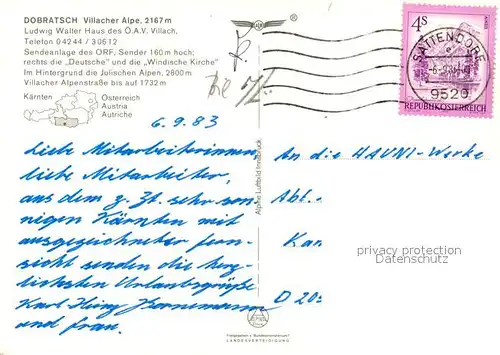 DOBRATSCH Villacher Alpe, 2167 m
Ludwig Walter Haus des Ö.A.V. Villach,
Telefon 04244 / 30612
Sendeanlage des ORF, Sender 160 m hoch;
rechts die „Deutsche" und die „Windische Kirche"
Im Hintergrund die Julischen Alpen, 2800 m
Villacher Alpenstraße bis auf 1732 m
Kärnten
Österreich
Austria
Autriche
6.9.83
Liebe Mitarbeiterinnen,
liebe Mitarbeiter,
aus dem z. Zt. sehr son-
nigen Kärnten mit
ausgezeichneter Fern-
sicht senden die herz-
lichsten Urlaubsgrüße
Karl Heinz
und Frau.
Alpine Luftbild Innsbruck
4S
REPUBLIK ÖSTERREICH
SATTENDORF
9520
An die HAUNI-Werke
Abt.
Kar
D 20
privacy protection
DOMATRADE.COM
LANDESVERTEIDIGUNG